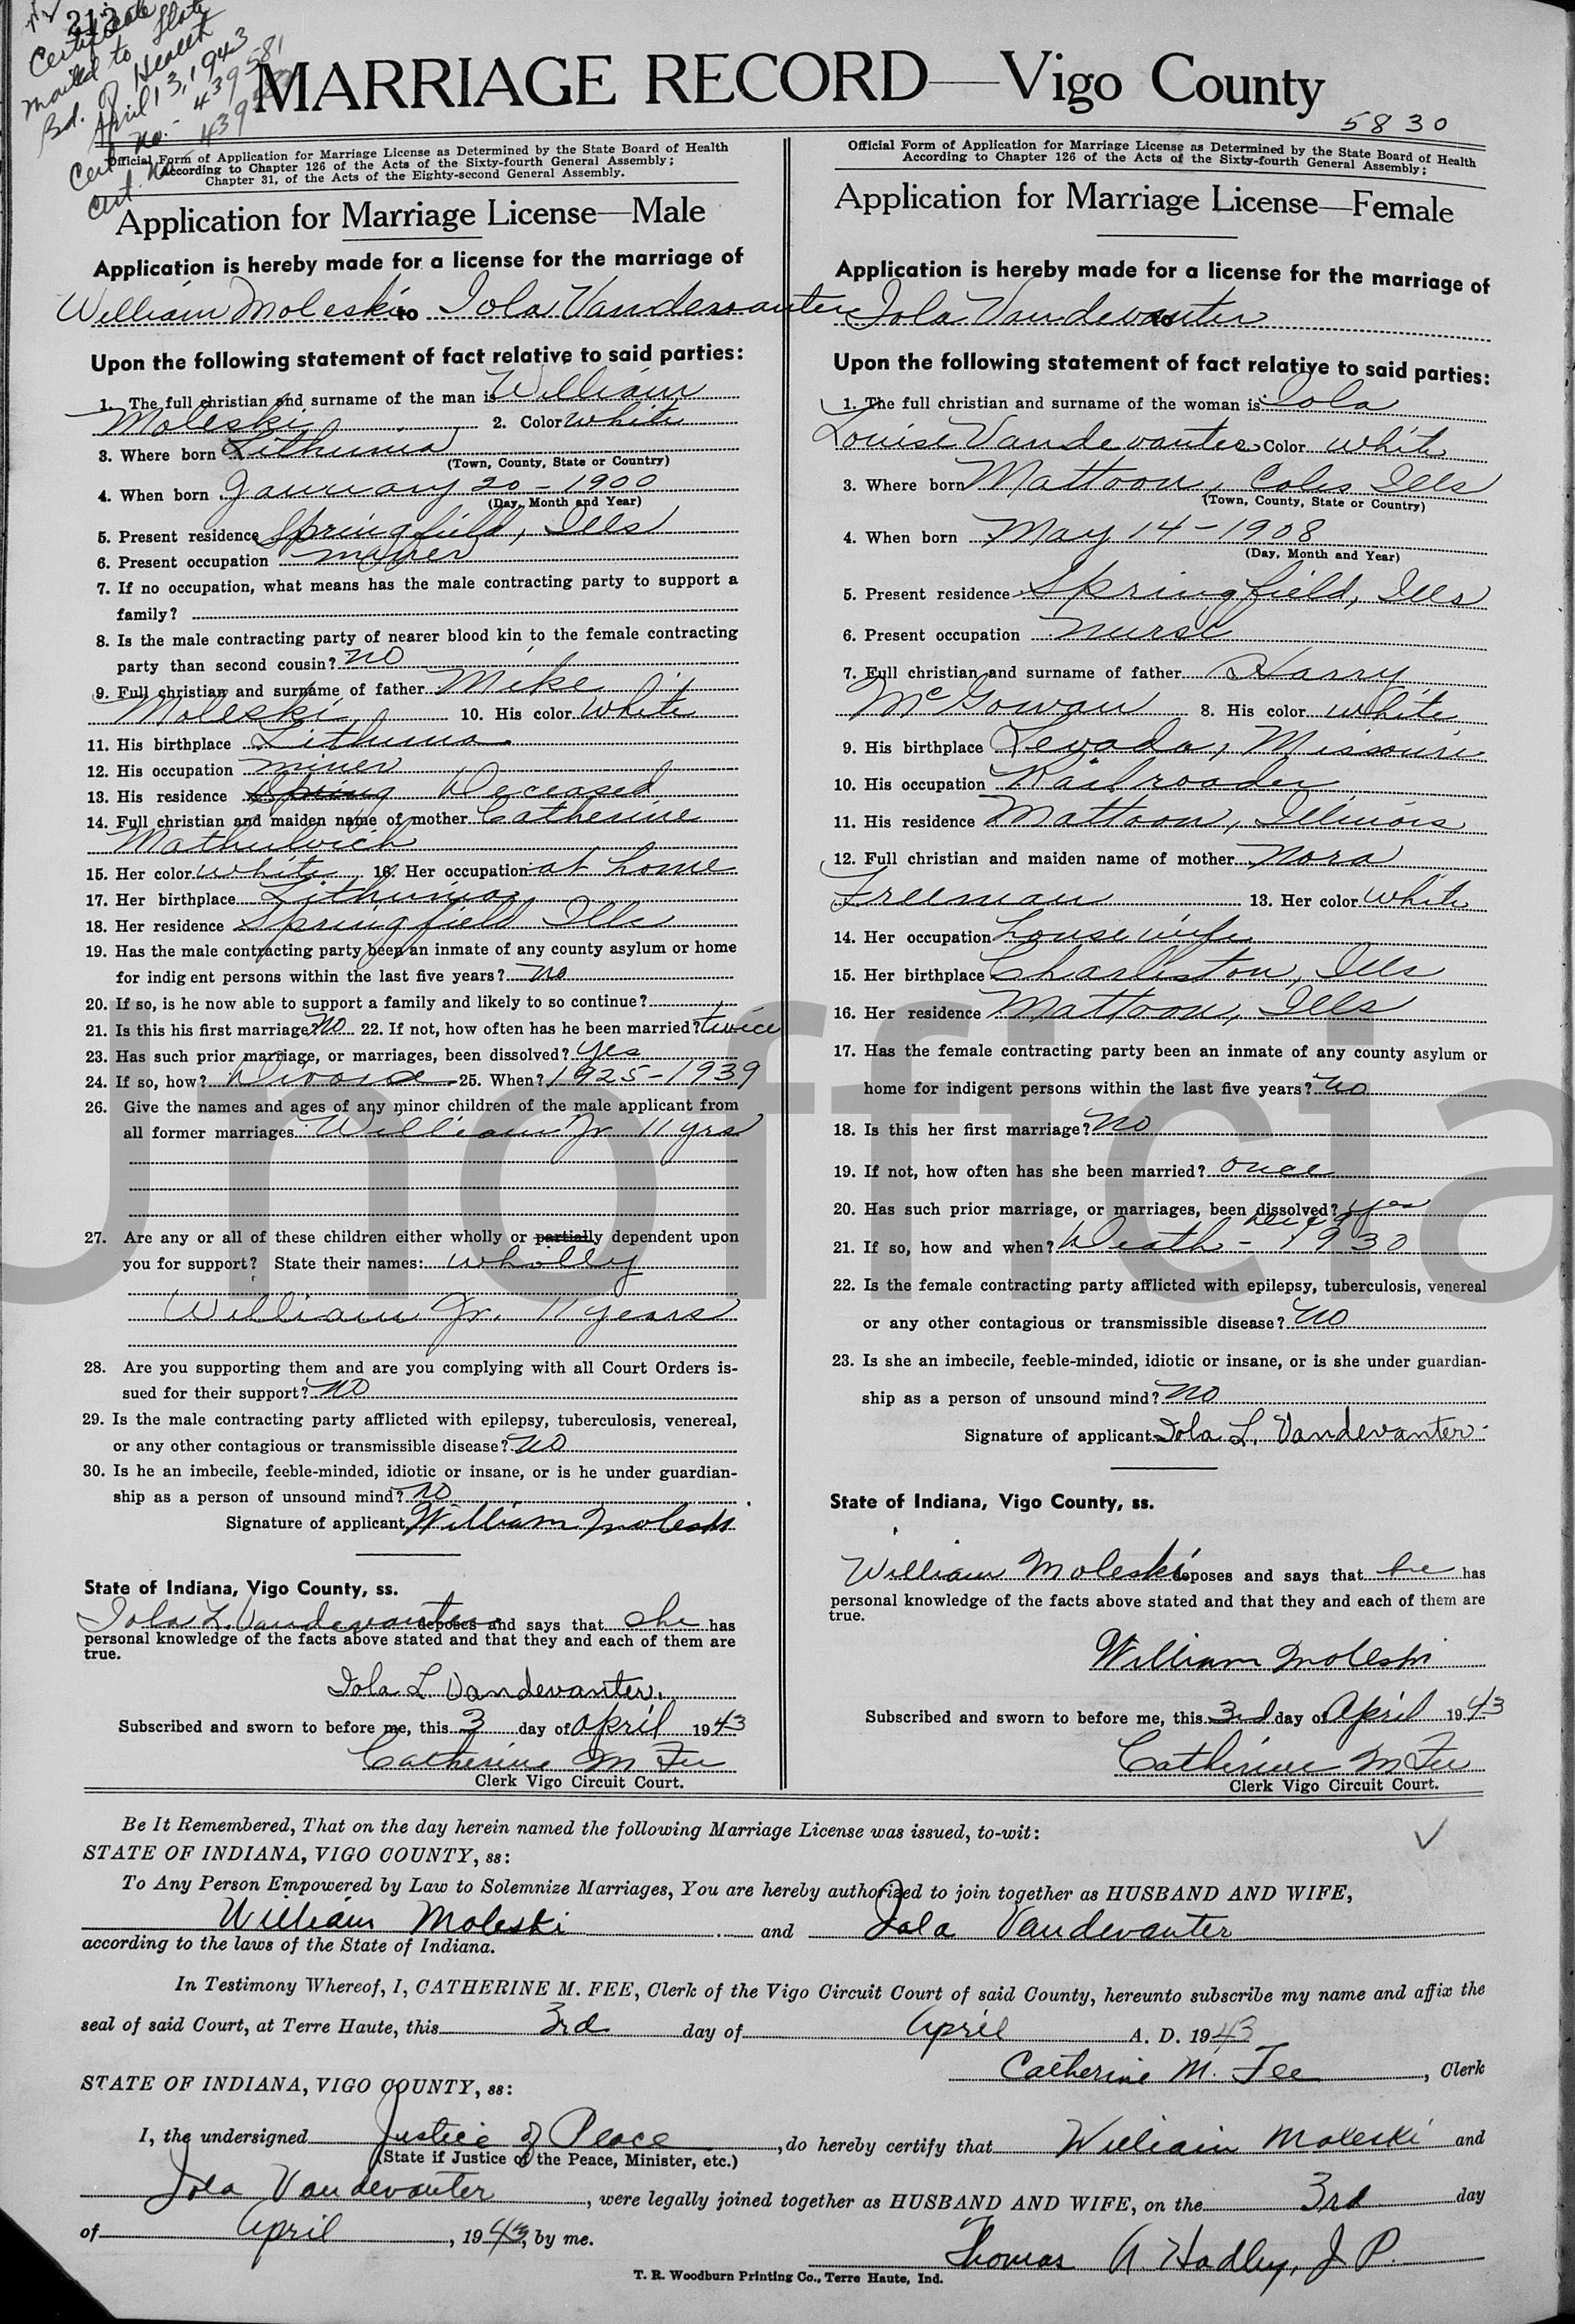 212
Certificate
mailed to State
Bd. of Health
April 13, 1943
Cert no. - 439581
Cert. no. 439
MARRIAGE RECORD—Vigo County
5830
Official Form of Application for Marriage License as Determined by the State Board of Health
According to Chapter 126 of the Acts of the Sixty-fourth General Assembly;
Chapter 31, of the Acts of the Eighty-second General Assembly.
Application for Marriage License—Male
Application is hereby made for a license for the marriage of
William Moleski to Iola Vandevanter
Upon the following statement of fact relative to said parties:
1. The full christian and surname of the man is William
Moleski 2. Color white
3. Where born Lithunia
(Town, County, State or Country)
4. When born January 20-1900
(Day, Month and Year)
5. Present residence Springfield, Ills
6. Present occupation miner
7. If no occupation, what means has the male contracting party to support a
family?
8. Is the male contracting party of nearer blood kin to the female contracting
party than second cousin? no
9. Full christian and surname of father Mike
Moleski 10. His color white
11. His birthplace Lithuna
12. His occupation miner
13. His residence Spring Deceased
14. Full christian and maiden name of mother Catherine
Mathulvich
15. Her color white 16. Her occupation at home
17. Her birthplace Lithunia
18. Her residence Springfield Ills
19. Has the male contracting party been an inmate of any county asylum or home
for indig ent persons within the last five years? no
20. If so, is he now able to support a family and likely to so continue?
21. Is this his first marriage? no 22. If not, how often has he been married? twice
23. Has such prior marriage, or marriages, been dissolved? yes
24. If so, how? Divorce 25. When? 1925-1939
26. Give the names and ages of any minor children of the male applicant from
all former marriages William Jr 11 yrs
27. Are any or all of these children either wholly or partially dependent upon
you for support? State their names: wholly
William Jr. 11 years
28. Are you supporting them and are you complying with all Court Orders is-
sued for their support? no
29. Is the male contracting party afflicted with epilepsy, tuberculosis, venereal,
or any other contagious or transmissible disease? no
30. Is he an imbecile, feeble-minded, idiotic or insane, or is he under guardian-
ship as a person of unsound mind? no
Signature of applicant William Moleski
State of Indiana, Vigo County, ss.
Iola L. Vandevanter deposes and says that she has
personal knowledge of the facts above stated and that they and each of them are
true.
Iola L Vandevanter.
Subscribed and sworn to before me, this 3 day of April 1943
Catherine M Fee
Clerk Vigo Circuit Court.
Official Form of Application for Marriage License as Determined by the State Board of Health
According to Chapter 126 of the Acts of the Sixty-fourth General Assembly;
Application for Marriage License—Female
Application is hereby made for a license for the marriage of
Iola Vandevanter to
Upon the following statement of fact relative to said parties:
1. The full christian and surname of the woman is: Iola
Louise Vandevanter Color white
3. Where born Mattoon, Coles Ills
(Town, County, State or Country)
4. When born May 14-1908
(Day, Month and Year)
5. Present residence Springfield, Ills
6. Present occupation nurse
7. Full christian and surname of father Harry
McGowan 8. His color white
9. His birthplace Levada, Missouri
10. His occupation Railroader
11. His residence Mattoon, Illinois
12. Full christian and maiden name of mother Nora
Freeman 13. Her color white
14. Her occupation housewife
15. Her birthplace Charleston, Ills
16. Her residence Mattoon, Ills
17. Has the female contracting party been an inmate of any county asylum or
home for indigent persons within the last five years? no
18. Is this her first marriage? no
19. If not, how often has she been married? once
20. Has such prior marriage, or marriages, been dissolved? yes
21. If so, how and when? Death - 1930
22. Is the female contracting party afflicted with epilepsy, tuberculosis, venereal
or any other contagious or transmissible disease? no
23. Is she an imbecile, feeble-minded, idiotic or insane, or is she under guardian-
ship as a person of unsound mind? no
Signature of applicant Iola L. Vandevanter
State of Indiana, Vigo County, ss.
William Moleski deposes and says that he has
personal knowledge of the facts above stated and that they and each of them are
true.
William Moleski
Subscribed and sworn to before me, this 3rd day of April 1943
Catherine M Fee
Clerk Vigo Circuit Court.
Be It Remembered, That on the day herein named the following Marriage License was issued, to-wit:
STATE OF INDIANA, VIGO COUNTY, ss:
To Any Person Empowered by Law to Solemnize Marriages, You are hereby authorized to join together as HUSBAND AND WIFE,
William Moleski and Iola Vandevanter
according to the laws of the State of Indiana.
In Testimony Whereof, I, CATHERINE M. FEE, Clerk of the Vigo Circuit Court of said County, hereunto subscribe my name and affix the
seal of said Court, at Terre Haute, this 3rd day of April A. D. 1943
Catherine M. Fee, Clerk
STATE OF INDIANA, VIGO COUNTY, ss:
I, the undersigned Justice of Peace, do hereby certify that William Moleski and
(State if Justice of the Peace, Minister, etc.)
Iola Vandevanter, were legally joined together as HUSBAND AND WIFE, on the 3rd day
of April, 1943, by me.
Thomas A. Hadley, J P.
T. R. Woodburn Printing Co., Terre Haute, Ind.
Unofficial